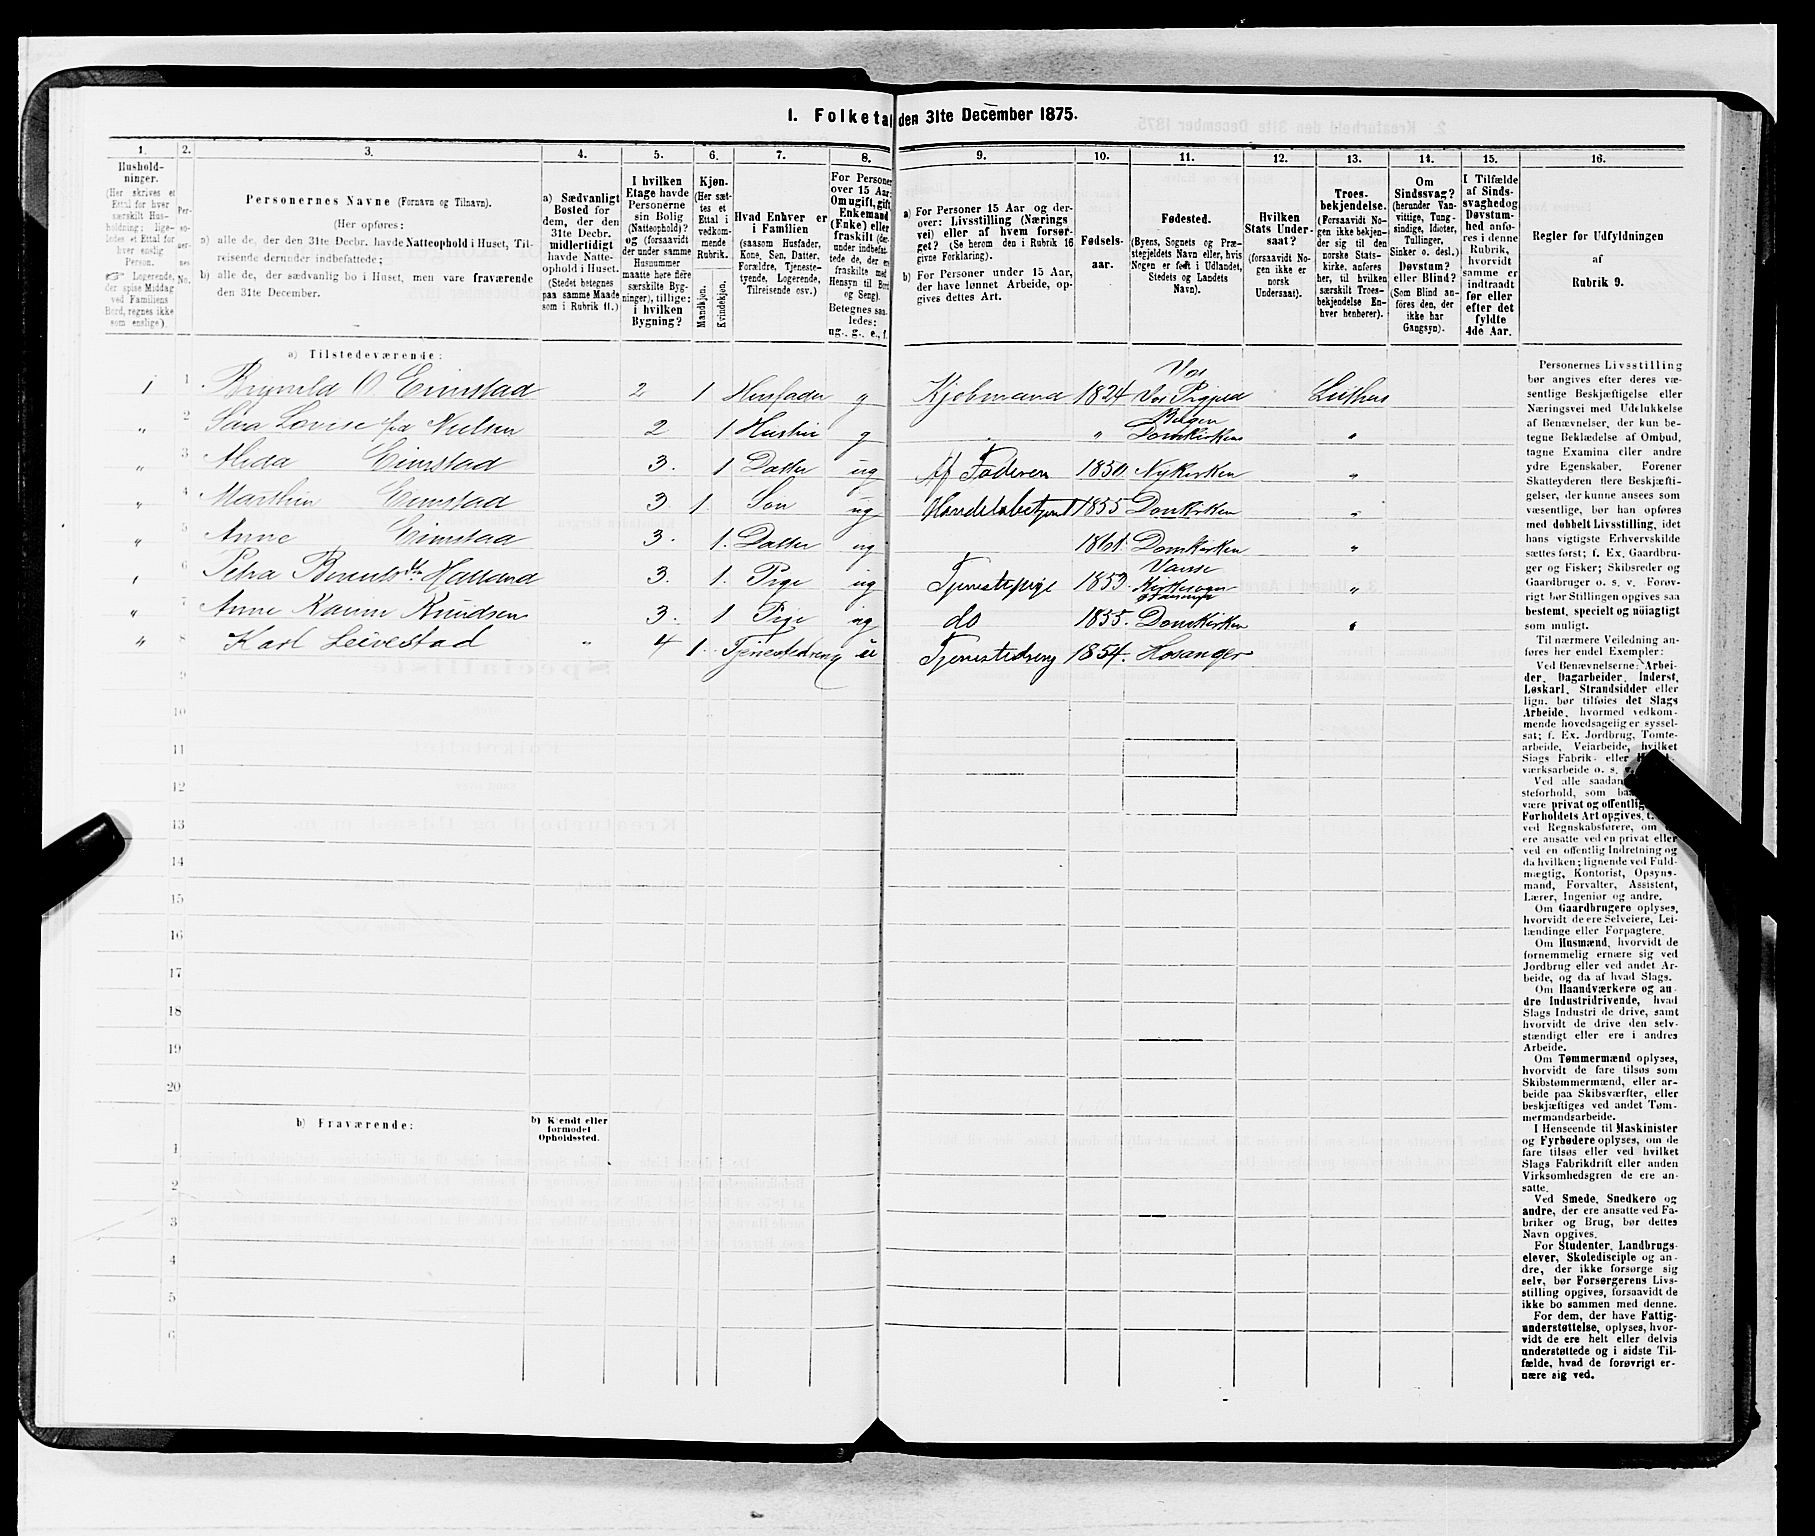 1. Folketal den 31te December 1875.
1.
Hushold-
ninger.
(Her skrives et
Ettal for hver
særskilt Hus-
holdning; lige-
ledes et Ettal for
hver enslig
Person.
☞ Logerende,
der spise Middag
ved Familiens
Bord, regnes ikke
som enslige).
2.
Per-
so-
ner-
nes
No.
3.
Personernes Navne (Fornavn og Tilnavn).
(Her opføres:
a) alle de, der den 31te Decbr. havde Natteophold i Huset, Til-
reisende derunder indbefattede;
b) alle de, der sædvanlig bo i Huset, men vare fraværende
den 31te December.
4.
a) Sædvanligt
Bosted for
dem, der den
31te Decbr.
midlertidigt
havde Natte-
ophold i Huset.
(Stedet betegnes
paa samme Maade
som i Rubrik 11.)
5.
I hvilken
Etage havde
Personerne
sin Bolig
(Natteophold)?
og (forsaavidt
der under samme
Husnummer
maatte høre flere
særskilte Byg-
ninger), tillige:
i hvilken
Bygning?
6.
Kjøn.
(Her sæt-
tes et
Ettal i
vedkom-
mende
Rubrik.
Mandkjøn.
Kvindekjøn.
7.
Hvad Enhver er
i Familien
(saasom Husfader,
Kone, Søn, Datter,
Forældre, Tjeneste-
tyende, Logerende,
Tilreisende osv.)
8.
For Personer
over 15 Aar:
Om ugift, gift,
Enkemand
(Enke) eller
fraskilt (der-
under indbefat-
tede de, der ere
fraskilte med
Hensyn til Bord
og Seng).
Betegnes saa-
ledes:
ug., g., e., f.
9.
a) For Personer 15 Aar og der-
over: Livsstilling (Nærings-
vei) eller af hvem forsør-
get? (Se herom den i Rubrik 16
givne Forklaring).
b) For Personer under 15 Aar,
der have lønnet Arbeide, op-
gives dettes Art.
10.
Fødsels-
aar.
11.
Fødested.
(Byens, Sognets og Præ-
stegjeldets Navn eller, hvis
Nogen er født i Udlandet,
Stedets og Landets
Navn).
12.
Hvilken
Stats Under-
saat?
(forsaavidt No-
gen ikke er
norsk
Undersaat).
13.
Troes-
bekjendelse.
(Forsaavidt No-
gen ikke bekjen-
der sig til den
norske Stats-
kirke, anføres
her, til hvilken
særskilt Troes-
bekjendelse En-
hver henhører).
14.
Om
Sindssvag?
(herunder Van-
vittige, Tung-
sindige, Idioter,
Tullinger,
Sinker o. desl.)
Døvstum?
eller Blind?
(Som Blind an-
føres den, der
ikke har
Gangsyn).
15.
I Tilfælde
af Sinds-
svaghed og
Døvstum-
hed anfø-
res i denne
Rubrik,
hvorvidt
samme er
indtraadt
før eller
efter det
fyldte
4de Aar.
16.
Regler for Udfyldningen
af
Rubrik 9.
a) Tilstedeværende:
1 1 Brynild O Eimstad 2 1 Husfader g Kjøbmand 1824 Vos Vos Prgjeld Luthers
" 2 Sara Lovise f. Nielsen 2 1 Hustru g " " Bergen Domkirken "
" 3 Alida Eimstad 3. 1 Datter ug Af Faderen 1850. Nykirken "
" 4 Marthin Eimstad 3 1. Søn ug Handelsbetjent 1855 Domkirken "
" 5 Anne Eimstad 3. 1. Datter ug 1861. Domkirken "
" 6 Petra Berents dtr Halland 3. 1. Pige ug Tjenestepige 1853. Vanse "
" 7 Anne Karin Knudsen 3. 1 Pige ug do 1855. Domkirken "
" 8 Karl Leivestad " 4 1. Tjenestedreng Tjenestedreng 1854. Hosanger
9
10
11
12
13
14
15
16
17
18
19
20
b) Fraværende:
b) Kjendt eller
formodet
Opholdssted.
1
2
3
4
5
6
Personernes Livsstilling
bør angives efter deres væ-
sentlige Beskjæftigelse eller
Næringsvei med Udelukkelse
af Benævnelser, der kun be-
tegne Beklædelse af Ombud,
tagne Examina eller andre
ydre Egenskaber. Forener
Skatteyderen flere Beskjæfti-
gelser, der kunne ansees som
væsentlige, bør han opføres
med dobbelt Livsstilling, idet
hans vigtigste Erhvervskilde
sættes først; f. Ex. Gaardbru-
ger og Fisker; Skibsreder og
Gaardbruger o. s. v. Forøv-
rigt bør Stillingen opgives saa
bestemt, specielt og nøiagtigt
som muligt.
Til nærmere Veiledning an-
føres her endel Exempler:
Ved Benævnelserne: Arbei-
der, Dagarbeider, Inderst,
Løskarl, Strandsidder eller
lign. bør tilføies det Slags
Arbeide, hvormed vedkom-
mende hovedsagelig er syssel-
sat; f. Ex. Jordbrug, Tomte-
arbeide, Veiarbeide, hvilket
Slags Fabrik- eller
værksarbeide o. s.
Ved alle saadan
steforhold, som
være privat og offentlig
Forholdets Art opgives,
ved Regnskabsførere, om
ere ansatte ved en privat eller
ved en offentlig Indretning og
da hvilken; lignende ved Fuld-
mægtig, Kontorist, Opsyns-
mand, Forvalter, Assistent,
Lærer, Ingeniør og andre.
Om Gaardbrugere oplyses,
hvorvidt de ere Selveiere, Lei-
lændinge eller Forpagtere.
Om Husmænd, hvorvidt de
fornemmelig ernære sig ved
Jordbrug eller ved andet Ar-
beide, og da af hvad Slags.
Om Haandværkere og an-
dre Industridrivende, hvad
Slags Industri de drive, samt
hvorvidt de drive den selv-
stændigt eller ere i andres
Arbeide.
Om Tømmermænd oplyses,
hvorvidt de fare tilsøs som
Skibstømmermænd, eller ar-
beide paa Skibsværfter, eller
beskjæftiges ved andet Tøm-
mermandsarbeide.
I Henseende til Maskinister
og Fyrbødere oplyses, om de
fare tilsøs eller ved hvilket
Slags Fabrikdrift eller anden
Virksomhedsgren de ere an-
satte.
Ved Smede, Snedkere og
andre, der ere ansatte ved Fa-
briker og Brug, bør dettes
Navn opgives.
For Studenter, Landbrugs-
elever, Skoledisciple og an-
dre, der ikke forsørge sig
selv, bør Forsørgerens Livs-
stilling opgives, forsaavidt de
ikke bo sammen med denne.
For dem, der have Fattig-
understøttelse, oplyses, hvor-
vidt de ere helt eller delvis
understøttede og i sidste Til-
fælde, hvad de forøvrigt er-
nære sig ved.